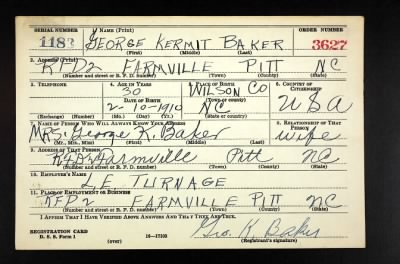 SERIAL NUMBER 1. NAME (Print) ORDER NUMBER
1183 GEORGE KERMIT BAKER 3627
(First) (Middle) (Last)
2. ADDRESS (Print)
RFD2 FARMVILLE PITT NC
(Number and street or R. F. D. number) (Town) (County) (State)
3. TELEPHONE 4. AGE IN YEARS 5. PLACE OF BIRTH 6. COUNTRY OF CITIZENSHIP
30 WILSON CO
DATE OF BIRTH (Town or county)
2-10-1910 NC USA
(Exchange) (No.) (Mo.) (Day) (Yr.) (State or country)
7. NAME OF PERSON WHO WILL ALWAYS KNOW YOUR ADDRESS 8. RELATIONSHIP OF THAT PERSON
MRS. George K. Baker wife
(Mr., Mrs., Miss) (First) (Middle) (Last)
9. ADDRESS OF THAT PERSON
Farmville Pitt NC
(Number and street or R. F. D. number) (Town) (County) (State)
10. EMPLOYER'S NAME
L E TURNAGE
11. PLACE OF EMPLOYMENT OR BUSINESS
RFD 2 FARMVILLE PITT NC
(Number and street or R. F. D. number) (Town) (County) (State)
I AFFIRM THAT I HAVE VERIFIED ABOVE ANSWERS AND THAT THEY ARE TRUE.
REGISTRATION CARD Geo. K. Baker
D. S. S. Form 1 (over) 16-17105 (Registrant's signature)